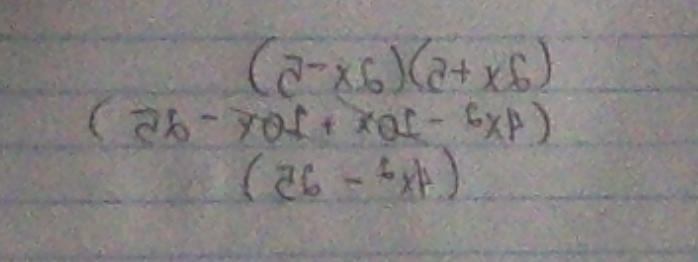 (2x+5)(2x-5)
(4x² - 10x + 10x - 25)
(4x² - 25)